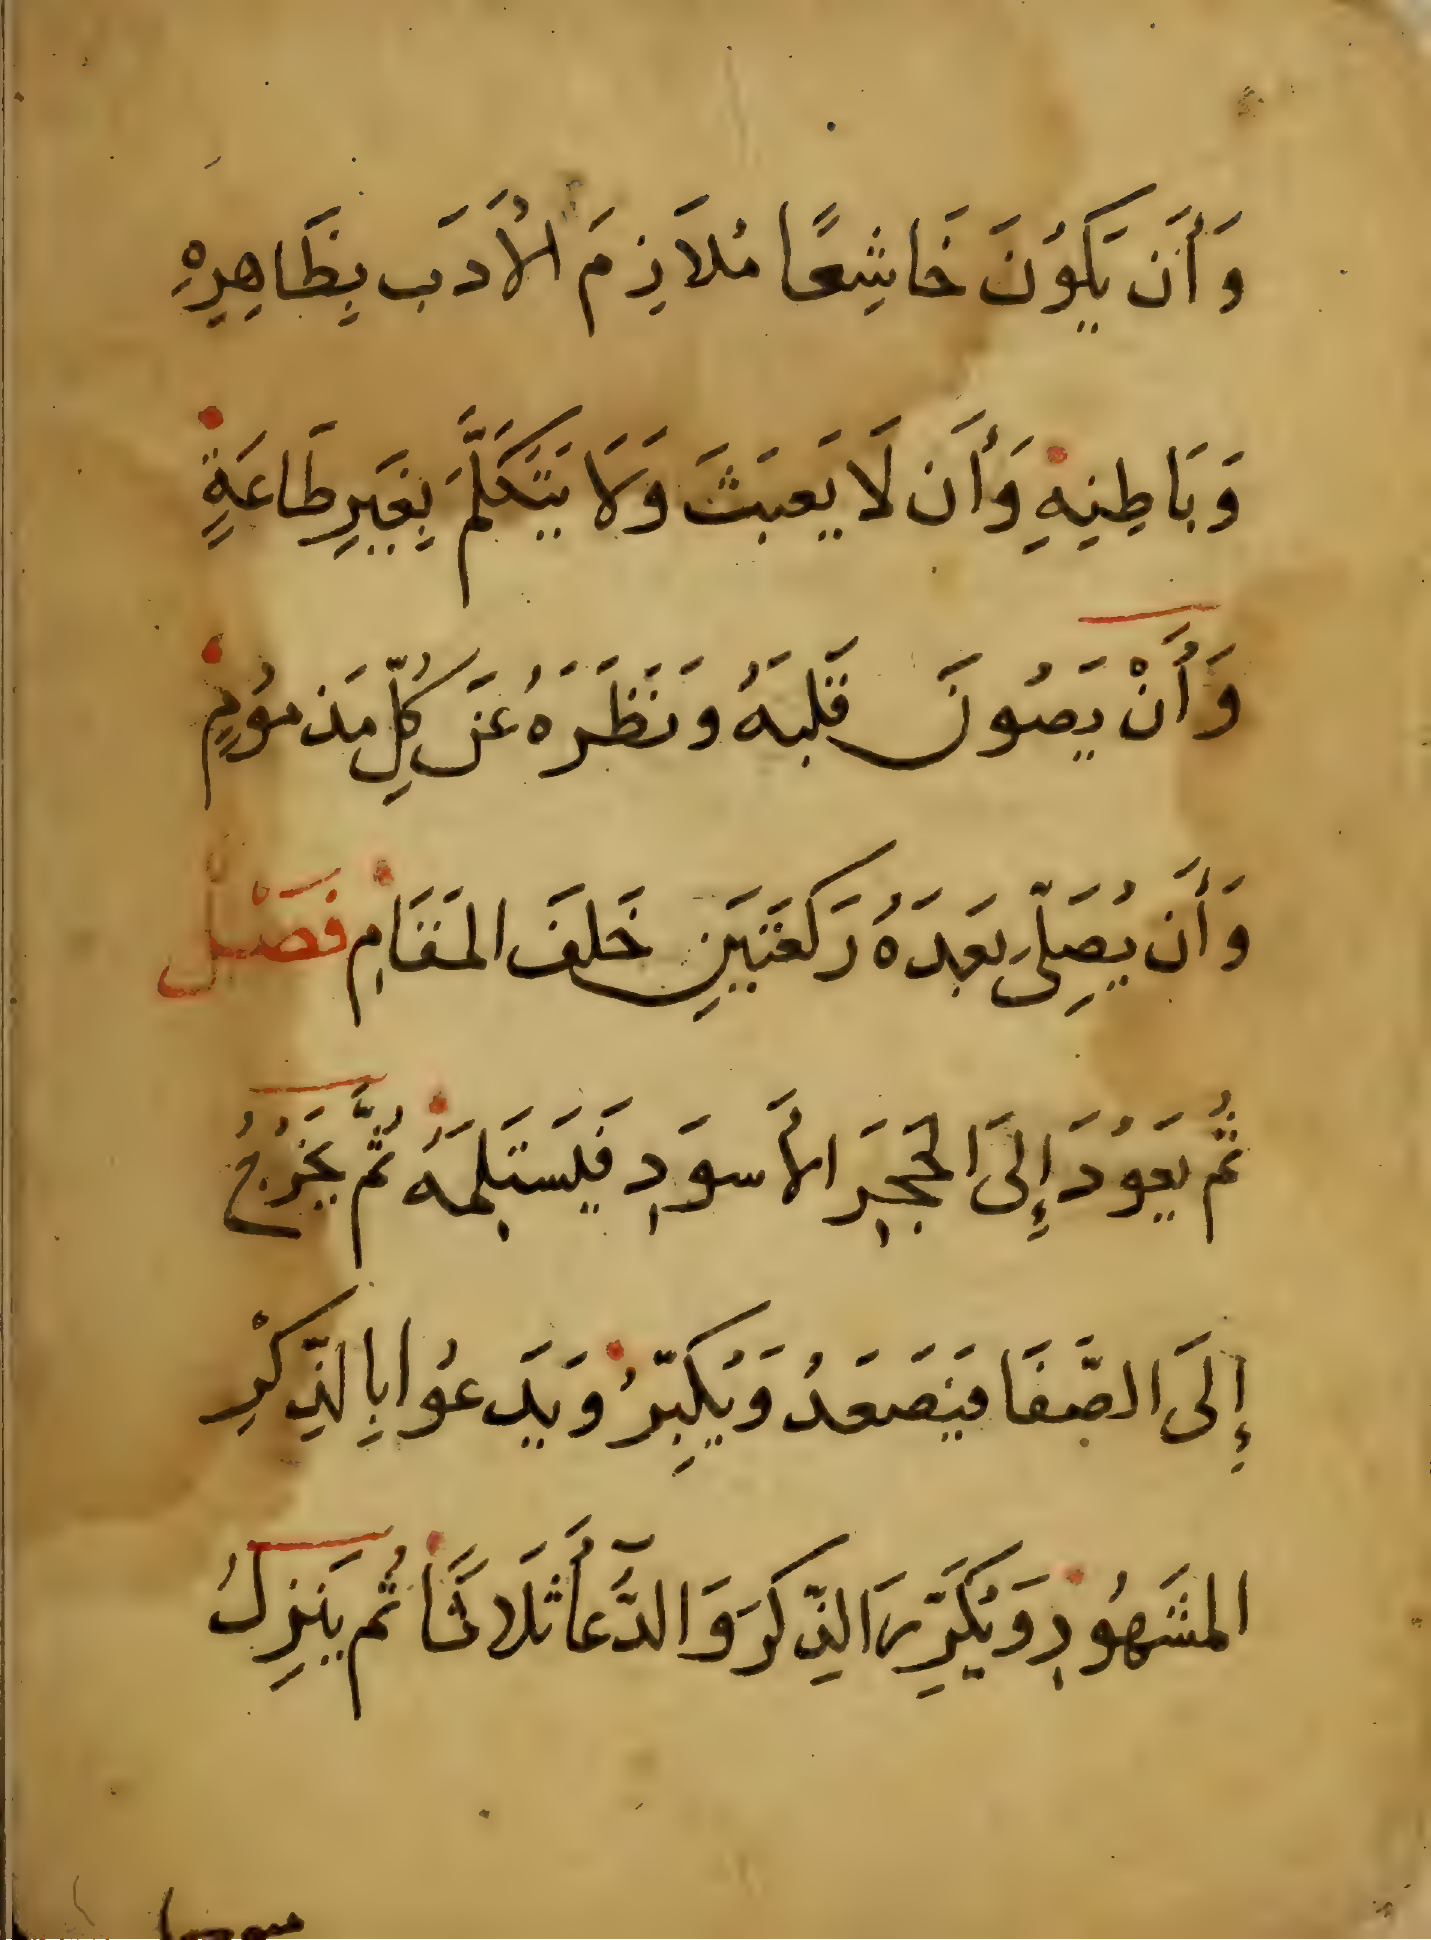 وَأَن يَكُونَ خَاشِعًا مُلَازِمَ الْأَدَبِ بِظَاهِرِهِ
وَبَاطِنِهِ وَأَن لَا يَعبَثَ وَلَا يَتَكَلَّمَ بِغَيرِ طَاعَةٍ
وَأَنْ يَصُونَ قَلبَهُ وَنَظَرَهُ عَن كُلِّ مَذمُومٍ
وَأَن يُصَلِّىَ بَعدَهُ رَكعَتَينِ خَلفَ المَقَامِ فَصْل
ثُم يَعُودَ إِلَى الحَجَرِ الأَسوَدِ فَيَستَلِمَهُ ثُمَّ يَخرُجُ
إِلَى الصَّفَا فَيَصعَدُ وَيُكَبِّرُ وَيَدعُوا بِالذِّكْرِ
المَشهُودِ وَيُكَرِّرَ الذِّكرَ وَالدُّعَآأَ ثَلَاثًا ثُم يَنزِلُ